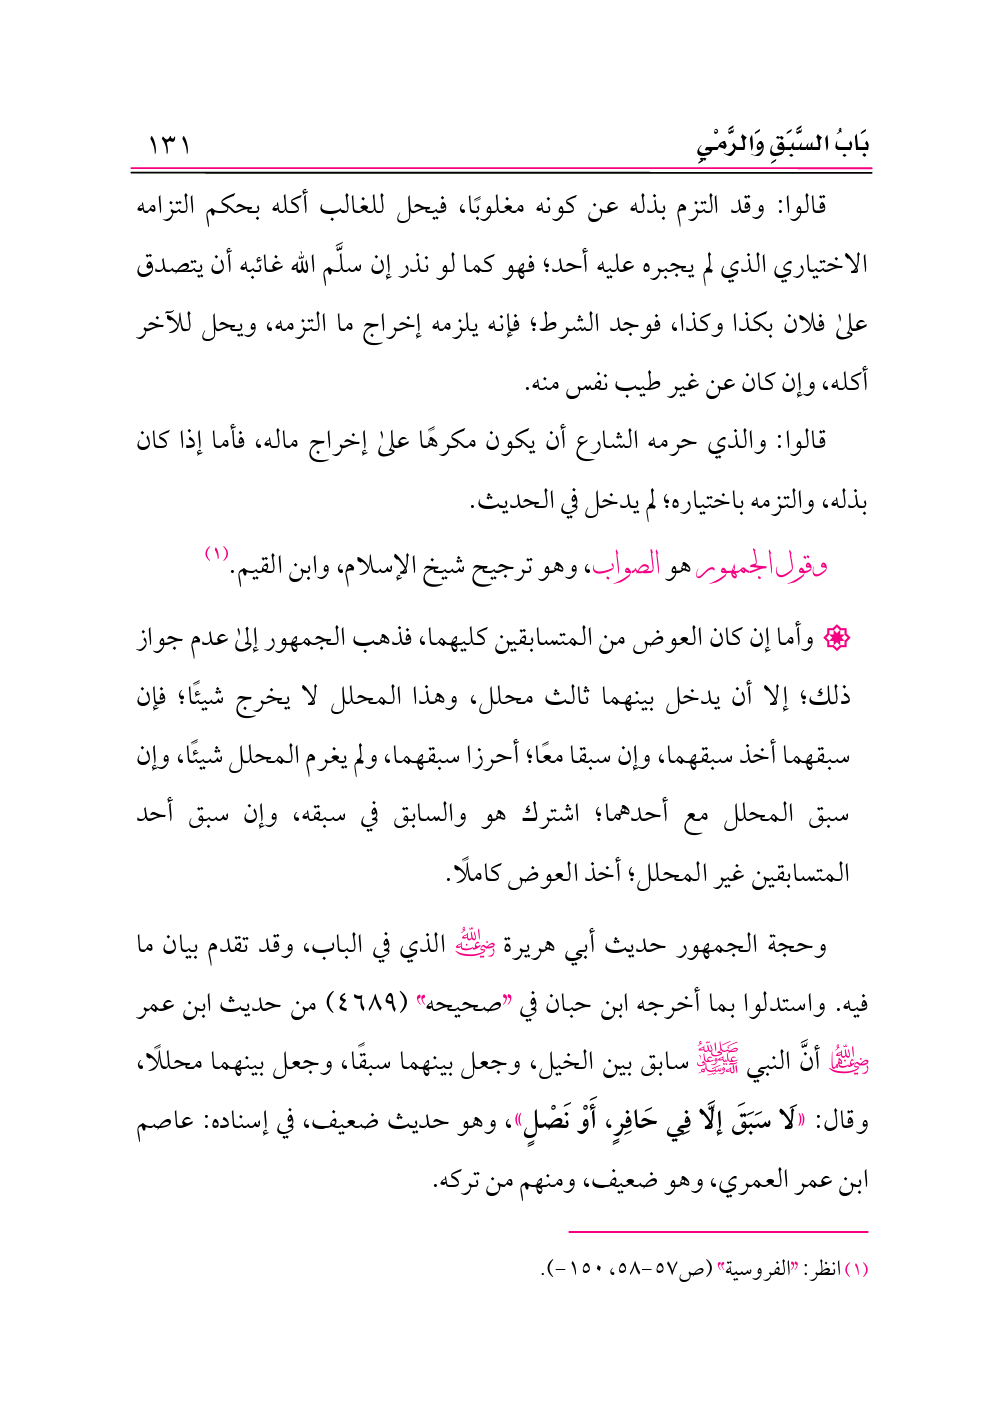 بَابُ السَّبَقِ وَالرَّمْيِ ١٣١
قالوا: وقد التزم بذله عن كونه مغلوبًا، فيحل للغالب أكله بحكم التزامه
الاختياري الذي لم يجبره عليه أحد؛ فهو كما لو نذر إن سلَّم الله غائبه أن يتصدق
علىٰ فلان بكذا وكذا، فوجد الشرط؛ فإنه يلزمه إخراج ما التزمه، ويحل للآخر
أكله، وإن كان عن غير طيب نفس منه.
قالوا: والذي حرمه الشارع أن يكون مكرهًا علىٰ إخراج ماله، فأما إذا كان
بذله، والتزمه باختياره؛ لم يدخل في الحديث.
وقول الجمهور هو الصواب، وهو ترجيح شيخ الإسلام، وابن القيم.(١)
وأما إن كان العوض من المتسابقين كليهما، فذهب الجمهور إلىٰ عدم جواز
ذلك؛ إلا أن يدخل بينهما ثالث محلل، وهذا المحلل لا يخرج شيئًا؛ فإن
سبقهما أخذ سبقهما، وإن سبقا معًا؛ أحرزا سبقهما، ولم يغرم المحلل شيئًا، وإن
سبق المحلل مع أحدهما؛ اشترك هو والسابق في سبقه، وإن سبق أحد
المتسابقين غير المحلل؛ أخذ العوض كاملًا.
وحجة الجمهور حديث أبي هريرة رضي الله عنه الذي في الباب، وقد تقدم بيان ما
فيه. واستدلوا بما أخرجه ابن حبان في "صحيحه" (٤٦٨٩) من حديث ابن عمر
رضي الله عنهما أنَّ النبي صلى الله عليه وعلى آله وسلم سابق بين الخيل، وجعل بينهما سبقًا، وجعل بينهما محللًا،
وقال: «لَا سَبَقَ إلَّا فِي حَافِرٍ، أَوْ نَصْلٍ»، وهو حديث ضعيف، في إسناده: عاصم
ابن عمر العمري، وهو ضعيف، ومنهم من تركه.
(١) انظر: "الفروسية" (ص٥٧-٥٨، ١٥٠-).